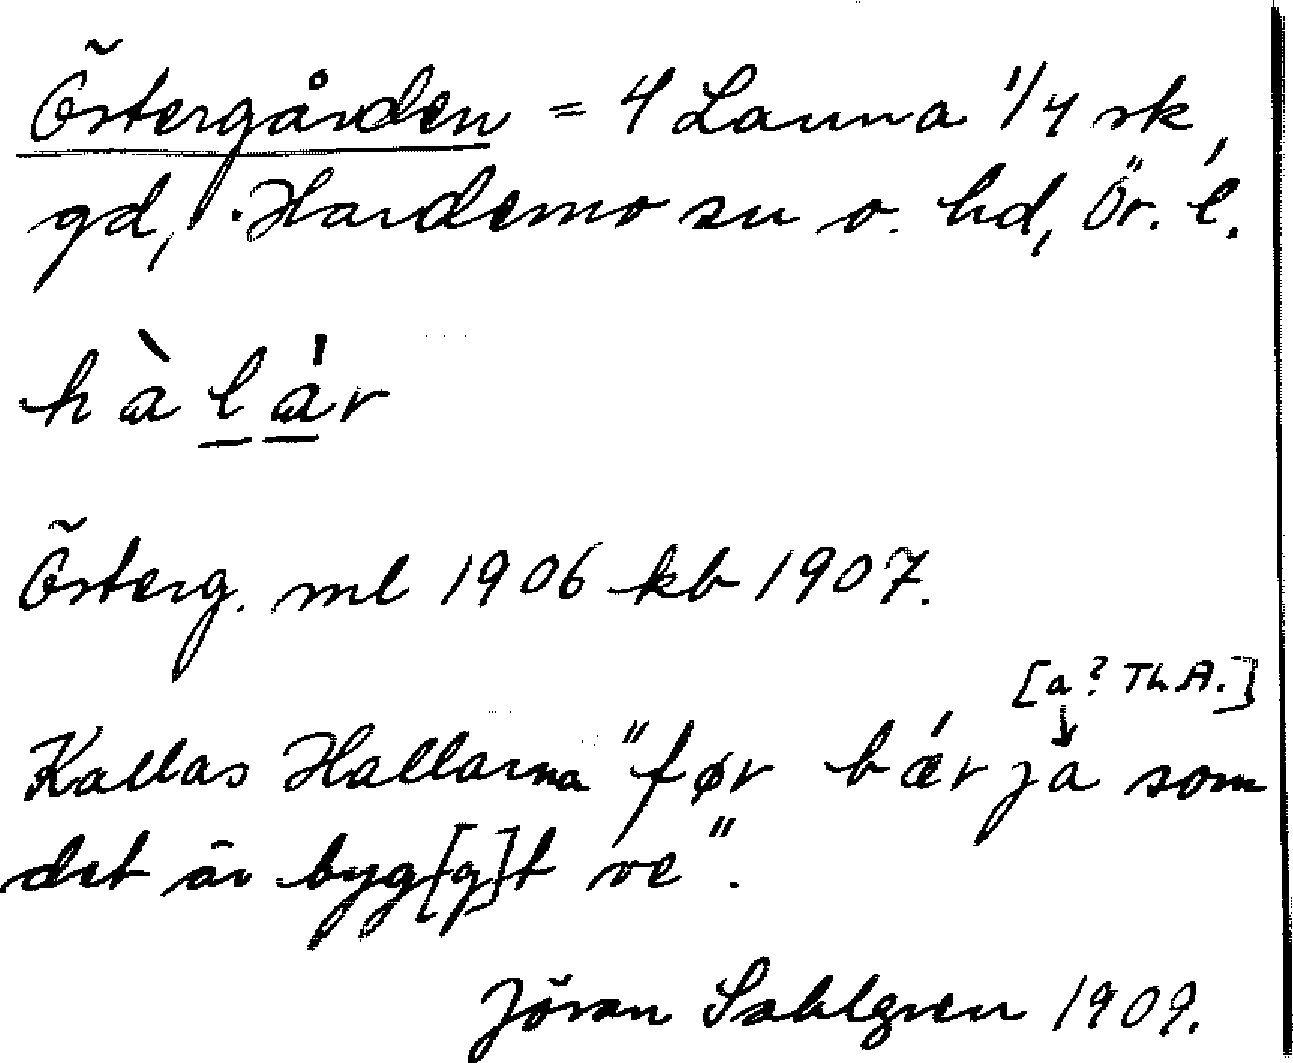 Östergården = 4 Launa 1/4 sk,
gd, Hardemo sn o. hd, Ör. l.
hàlár
Österg. ml 1906 kb 1907.
[a? Th.A.]
Kallas Hallarna "før bǽrja som
det är byg[g]t ve".
Jöran Sahlgren 1909.